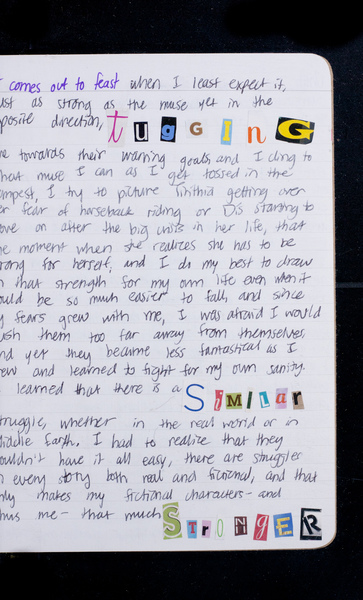 comes out to feast when I least expect it,
just as strong as the muse yet in the
opposite direction, tUGGING
me towards their warning goals, and I cling to
what muse I can as I get tossed in the
tempest, I try to picture getting over
her fear of horseback riding or Dis starting to
move on after the big in her life, that
the moment when she realizes she has to be
strong for herself, and I do my best to draw
on that strength for my own life even when it
would be so much easier to fall, and since
my fears grew with me, I was afraid I would
push them too far away from themselves,
and yet they became less fantastical as I
grew and learned to fight for my own sanity.
I learned that there is a SiMiLar
struggle, whether in the real world or in
Middle Earth. I had to realize that they
couldn't have it all easy, there are struggles
in every story both real and fictional, and that
only makes my fictional characters - and
thus me - that much STrONGER